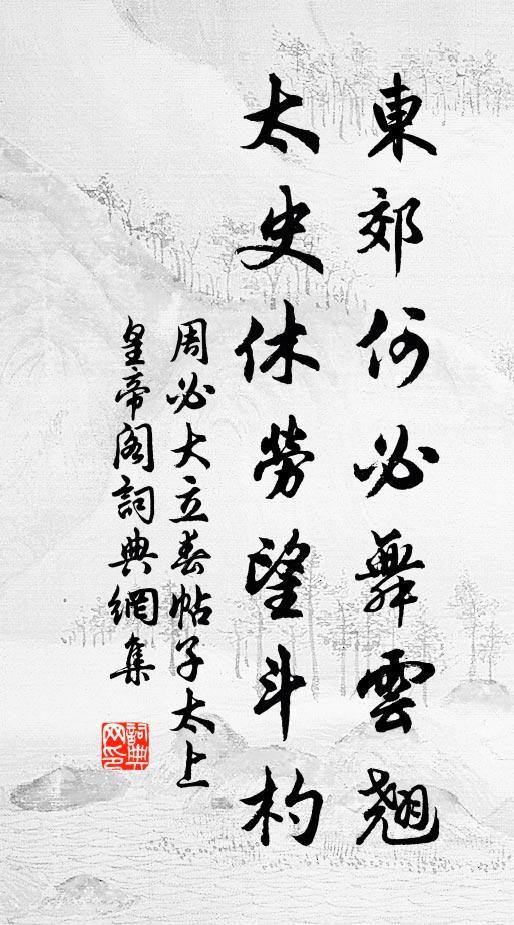 東郊何必舞雲翹
太史休勞望斗杓
周必大立春帖子太上
皇帝閣詞典網集
詞典
网印